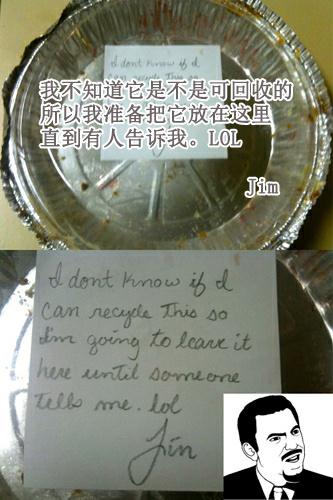 I dont know if I
can recycle this so
我不知道它是不是可回收的
所以我准备把它放在这里
直到有人告诉我。LOL
Jim
I dont know if I
can recycle this so
I'm going to leave it
here until someone
tells me. lol
Jim